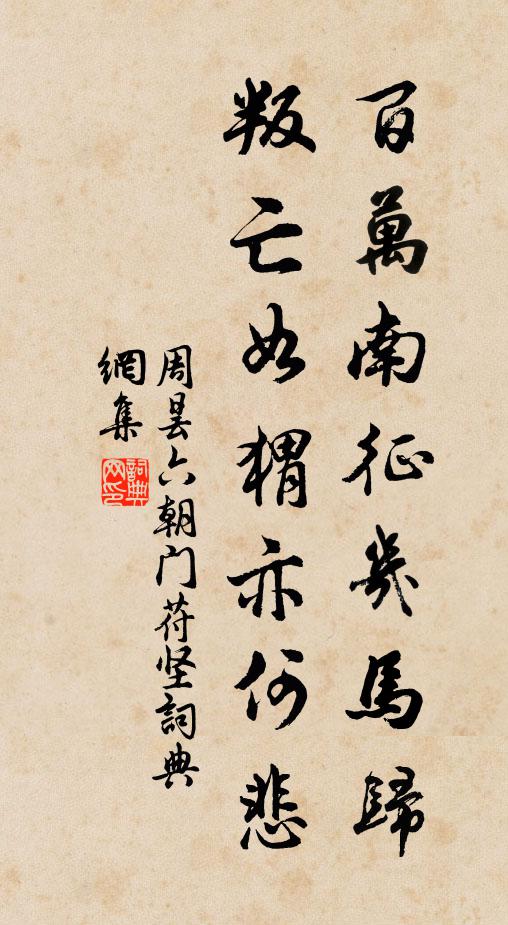 百萬南征幾馬歸
叛亡如猬亦何悲
周曇六朝門苻堅詞典
網集
詞典网印